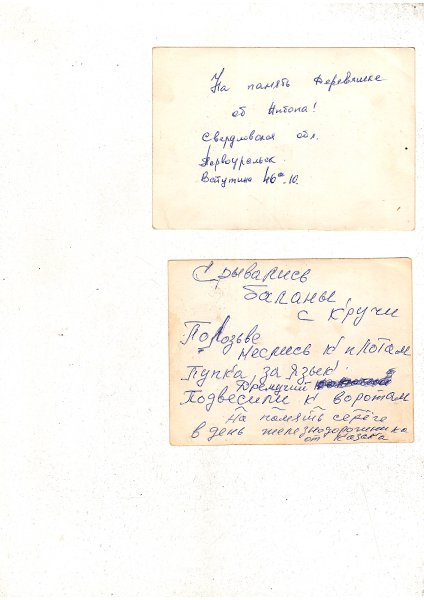 На память Деревяшке
от Антона!
Свердловская обл.
Первоуральск.
Ватутина 46а-10.
Срывались
баланы,
с кручи
Полозьве
Неслись к плотам
Пупка за язык!
Дремучий
Подвесили к воротам
На помять серёге
в день железнодорожника
от Казака